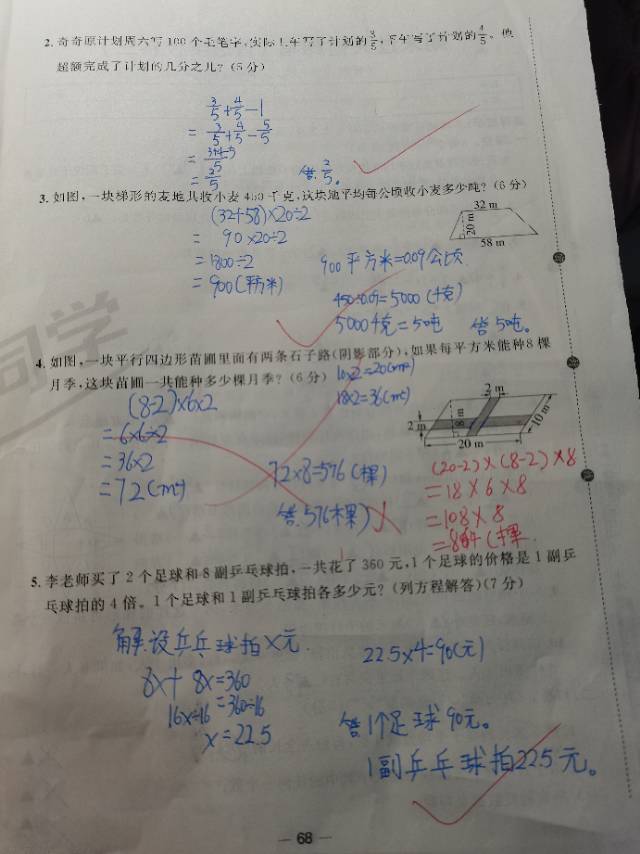 2. 奇奇原计划周六写 100 个毛笔字,实际上午写了计划的3/5,下午写了计划的4/5。他
超额完成了计划的几分之几?(5 分)
3/5+4/5-1
=3/5+4/5-5/5
=
=2/5
答:2/5。
3. 如图,一块梯形的麦地共收小麦 450 千克,这块地平均每公顷收小麦多少吨?(6 分)
(32+58)×20÷2
= 90×20÷2
=1800÷2
=900(平方米)
900平方米=0.09公顷
450÷0.09=5000(千克)
5000千克=5吨 答5吨。
32 m
20 m
58 m
同学
4. 如图,一块平行四边形苗圃里面有两条石子路(阴影部分),如果每平方米能种 8 棵
月季,这块苗圃一共能种多少棵月季?(6 分)
10×2=20(m²)
18×2=36(m²)
(8-2)×6×2
=6×6×2
=36×2
=72(m²)
72×8=576(棵)
答:576(棵)
2 m
2 m
8 m
10 m
20 m
(20-2)×(8-2)×8
=18×6×8
=108×8
=864(棵
5. 李老师买了 2 个足球和 8 副乒乓球拍,一共花了 360 元,1 个足球的价格是 1 副乒
乓球拍的 4 倍。1 个足球和 1 副乒乓球拍各多少元?(列方程解答)(7 分)
解:设乒乓球拍x元.
8x+8x=360
16x÷16=360÷16
x=22.5
22.5×4=90(元)
答1个足球90元。
1副乒乓球拍22.5元。
— 68 —